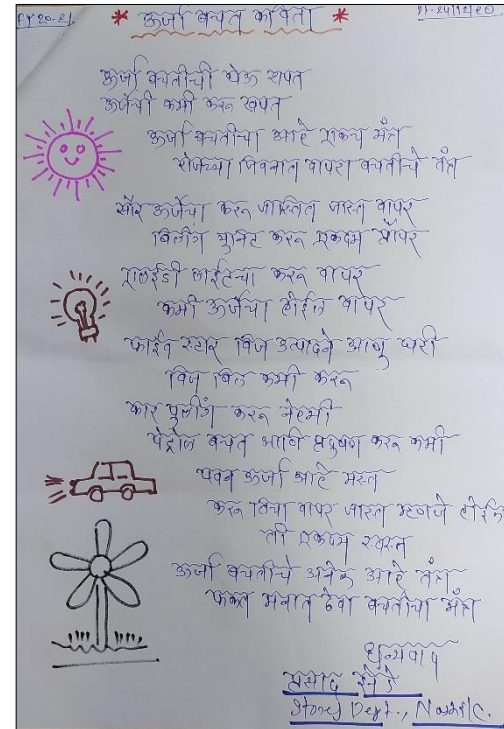 FY 20-21
दि-24/12/20
* ऊर्जा बचत कविता *
ऊर्जा बचतीची घेऊ शपत
ऊर्जेची कमी करू खपत
ऊर्जा बचतीचा आहे एकच मंत्र
रोजच्या जिवनात वापरा बचतीचे तंत्र
सौर ऊर्जेचा करू जास्तित जास्त वापर
बिलींग युनिट करू एकदम
एलईडी लाईटचा करू वापर
कमी ऊर्जेचा होईल वापर
फाईव स्टार विज उत्पादने आणू घरी
विज बिल कमी करू
कार पुलींग करू नेहमी
पेट्रोल बचत आणि प्रदुषण करू कमी
पवन ऊर्जा आहे मस्त
करू तिचा वापर जास्त म्हणजे होईल
ती एकदम स्वस्त
ऊर्जा बचतीचे अनेक आहे तंत्र
फक्त मनात ठेवा बचतीचा मंत्र
धन्यवाद
प्रसाद
Stores Dept., Nashik.